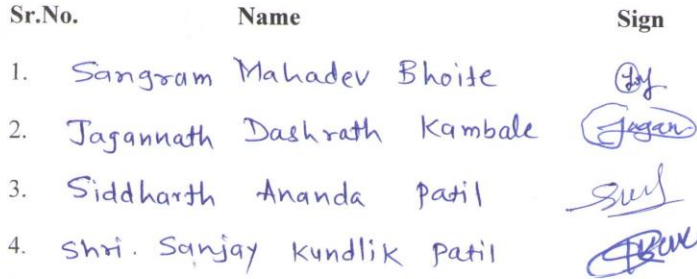 Sr.No. Name Sign
1. Sangram Mahadev Bhoite
2. Jagannath Dashrath Kambale Jagan
3. Siddharth Ananda Patil
4. Shri. Sanjay Kundlik Patil